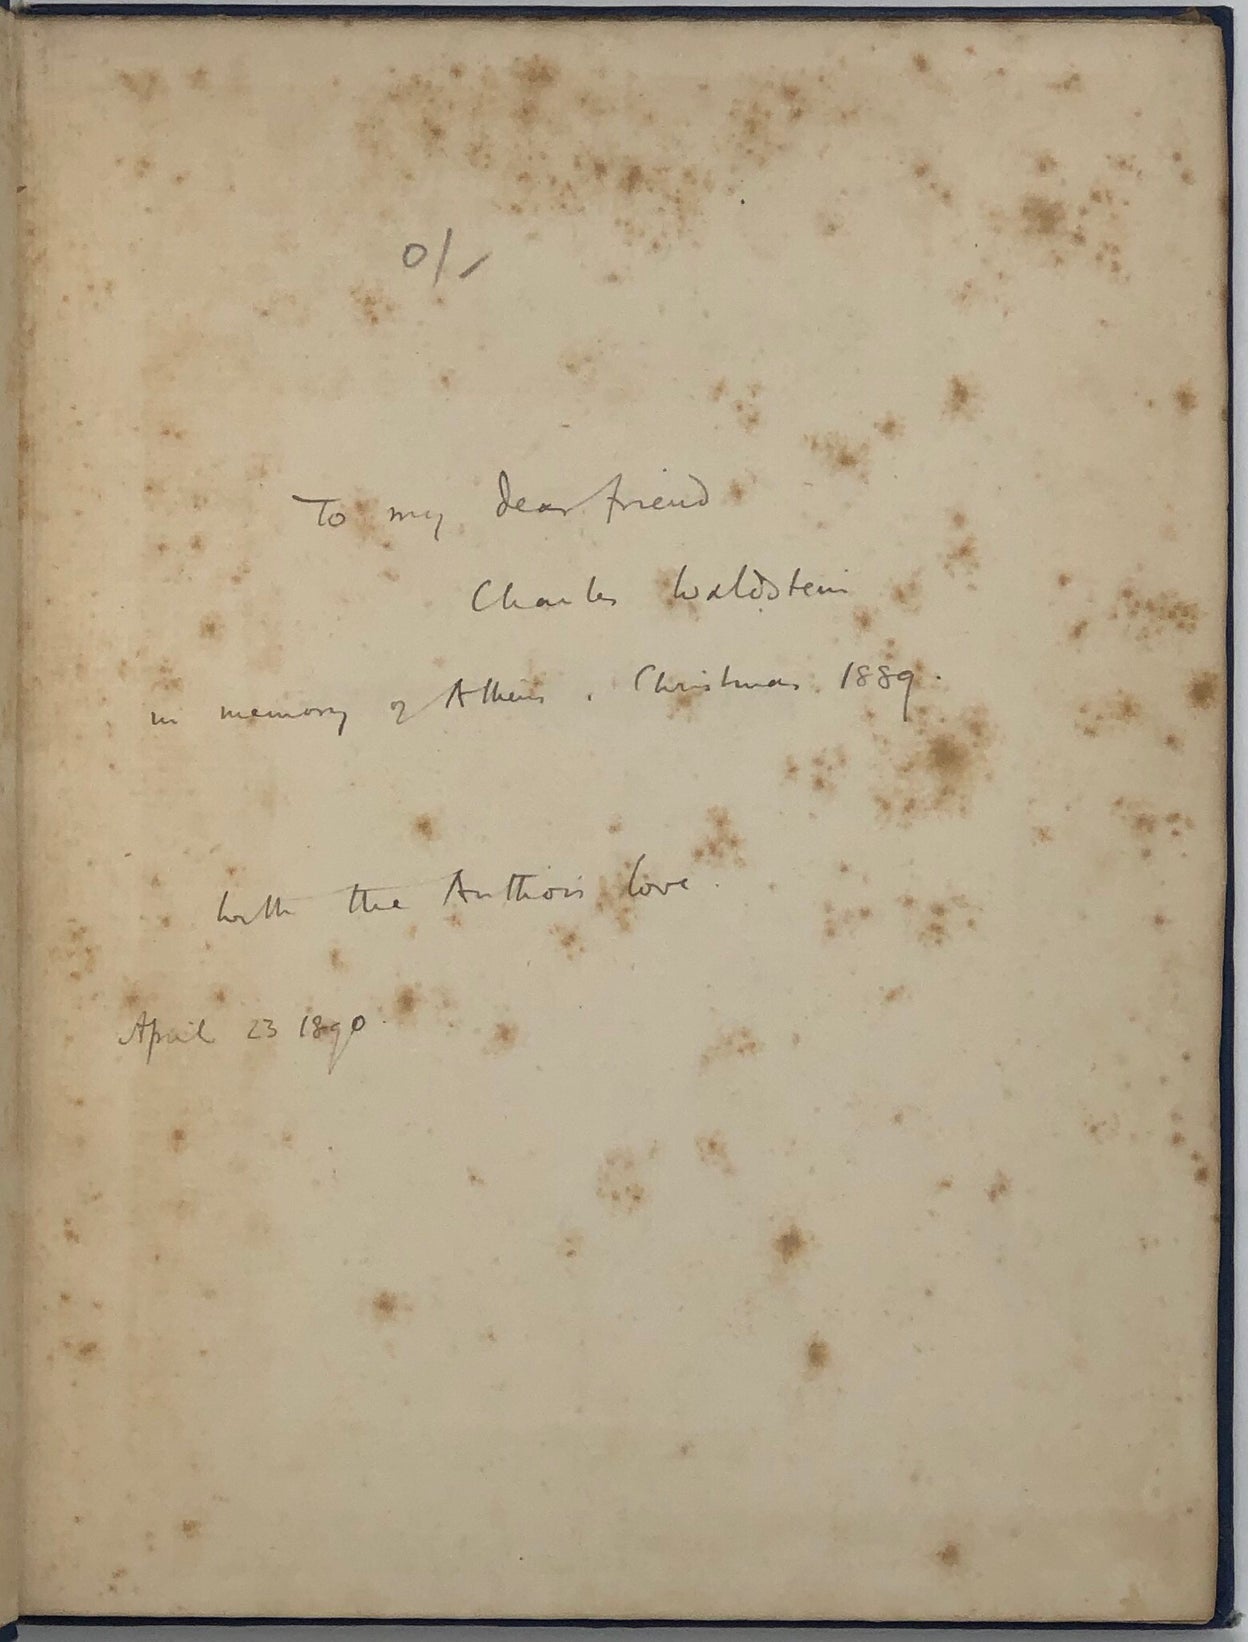 0/-
To my dear friend
Charles Waldstein
in memory of Athens . Christmas 1889.
With the Authors love.
April 23 1890.